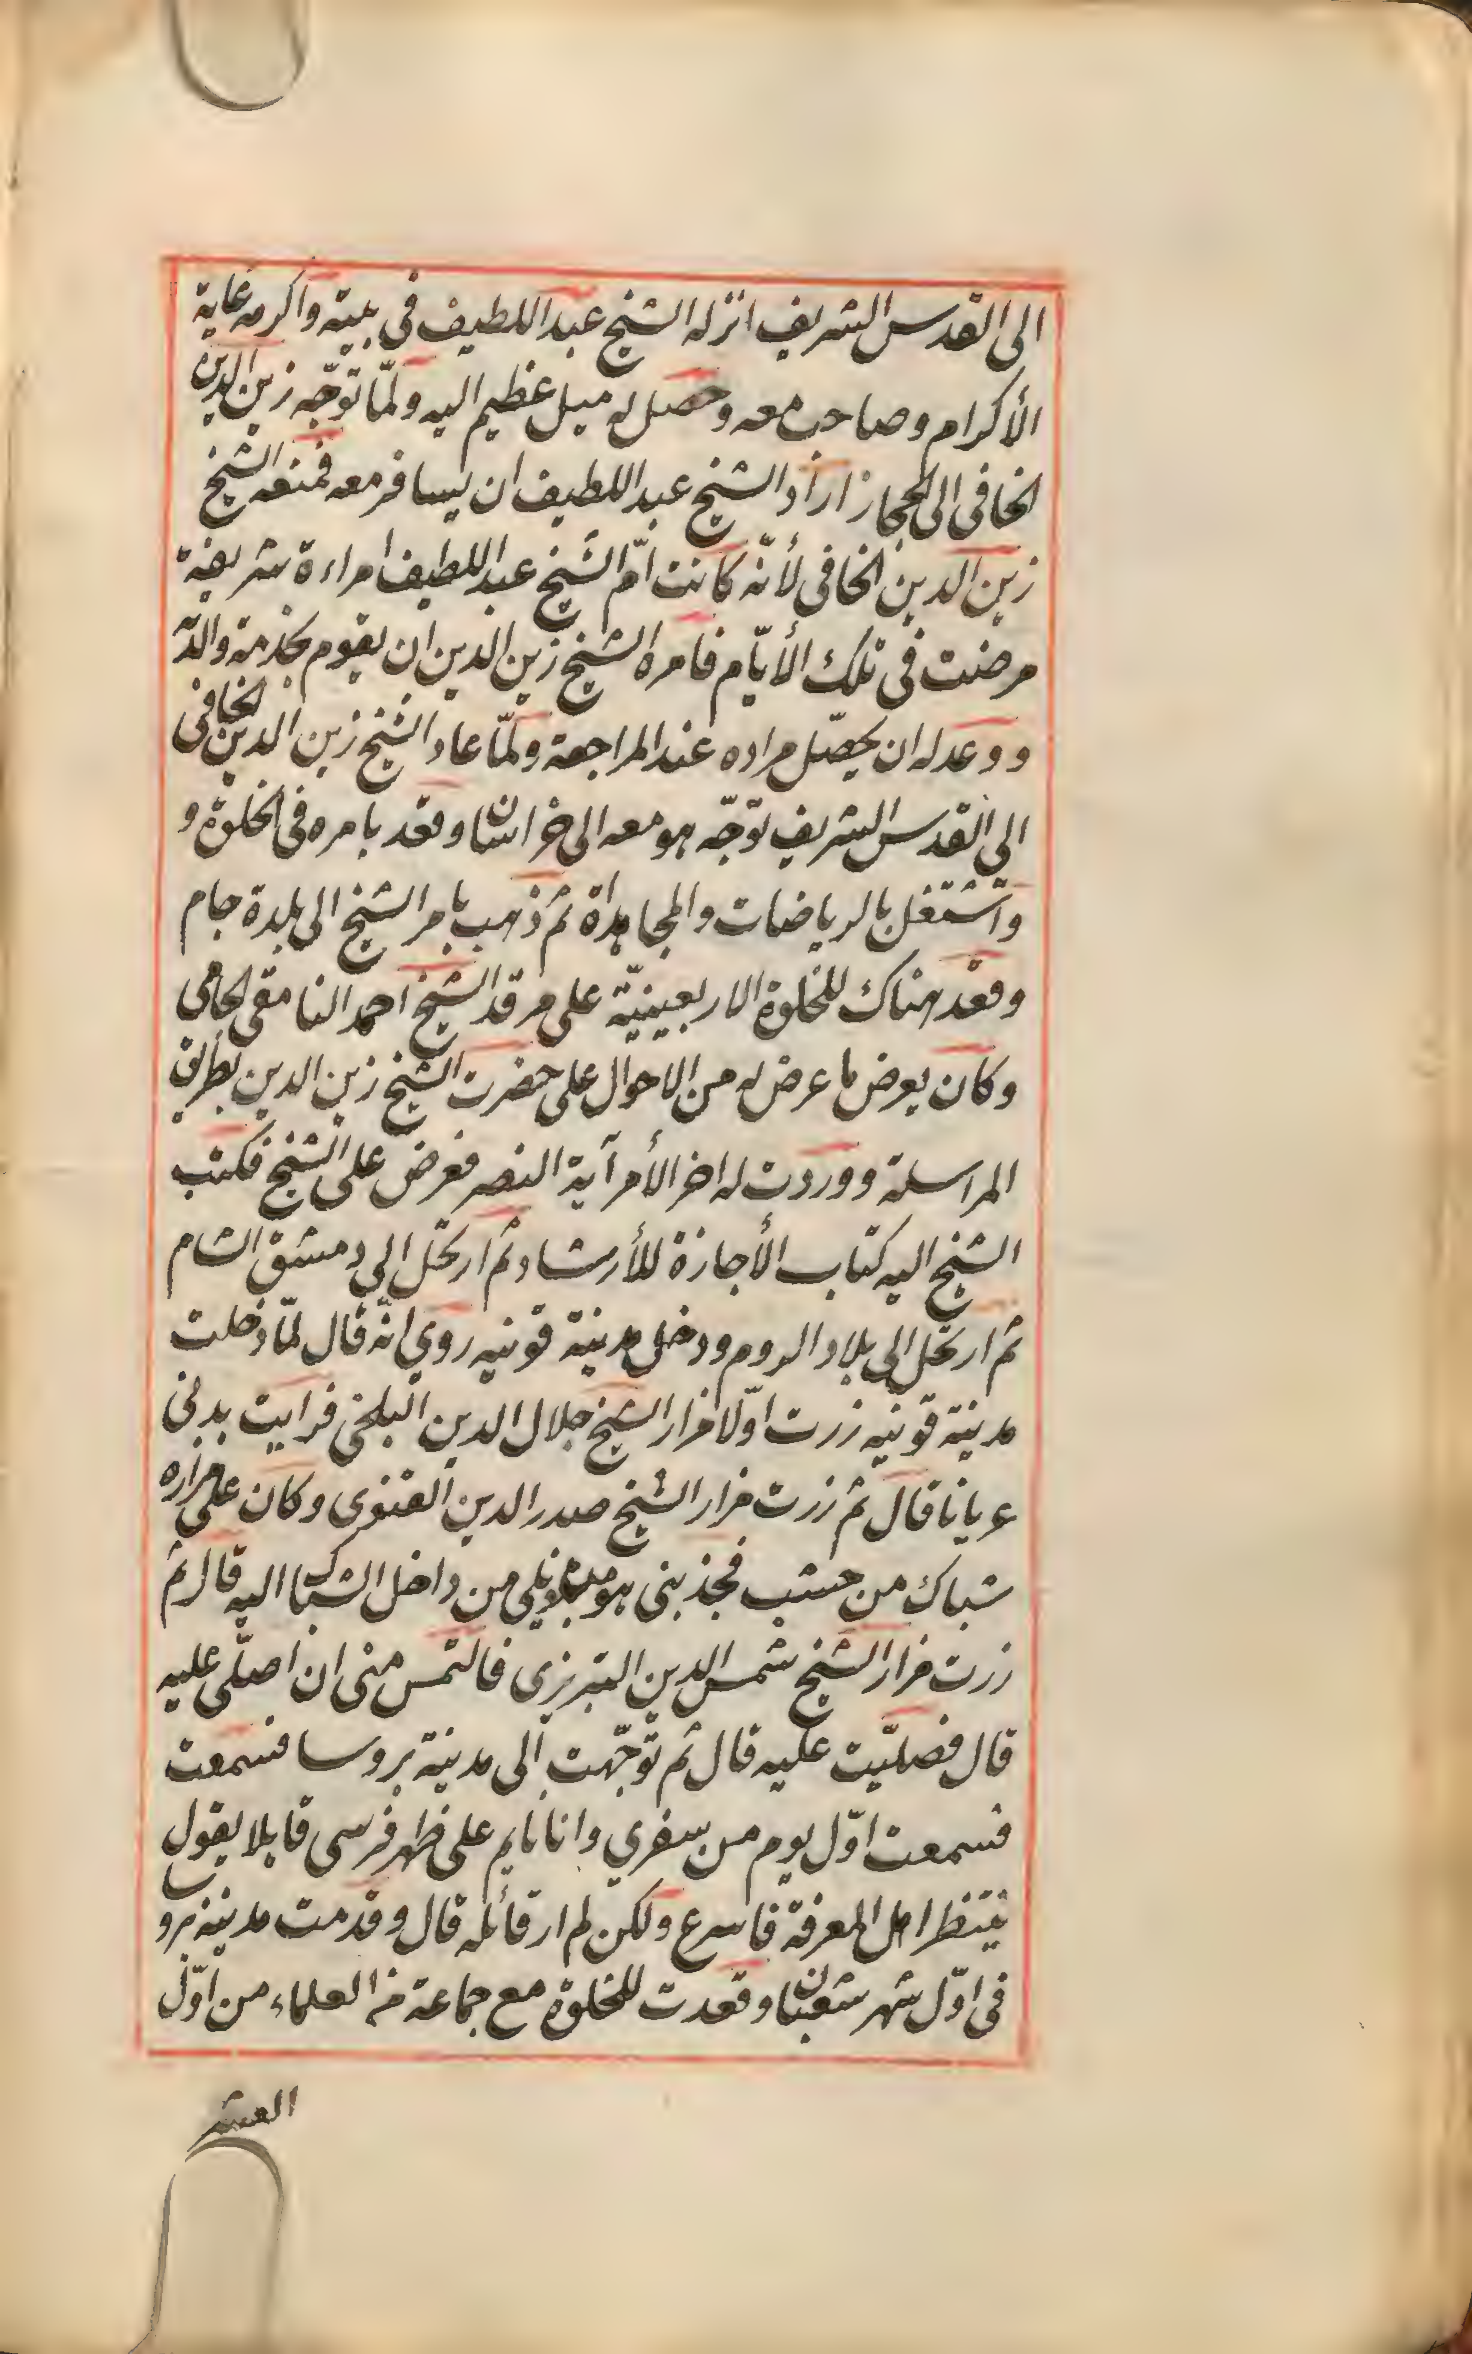 الى القدس الشريف انزله الشيخ عبد اللطيف فى بيته واكرمه غاية
الأكرام وصاحب معه وحصل له ميل عظيم اليه ولمّا توجّه زين الدين
الخافى الى الحجاز اراد الشيخ عبد اللطيف ان يسافر معه فمنعه الشيخ
زين الدين الخافى لأنّه كانت امّ الشيخ عبد اللطيف امراءة شريفة
مرضت فى تلك الأيّام فامره الشيخ زين الدين ان يقوم بخدمة والدته
ووعد له ان يحصّل مراده عند المراجعة ولمّا عاد الشيخ زين الدين الخافى
الى القدس الشريف توجّه هو معه الى خراسان وقعد بامره فى الخلوة و
واشتغل بالرياضات والمجاهداة ثم ذهب بامر الشيخ الى بلدة جام
وقعد هناك للخلوة الاربعينيّة على مرقد الشيخ احمد النامقى الجامى
وكان يعرض ما عرض له من الاحوال على حضرت الشيخ زين الدين بطريق
المراسلة ووردت له اخر الأمر آية النصر فعرض على الشيخ فكتب
الشيخ اليه كتاب الأجازة للأرشاد ثم ارتحل الى دمشق الشام
ثم ارتحل الى بلاد الروم ودخل مدينة قونيه روى انّه قال لمّا دخلت
مدينة قونيه زرت اوّلا مزار الشيخ جلال الدين البلخى فرايت بدنى
عريانا قال ثم زرت مزار الشيخ صدر الدين القنوى وكان على مزاره
شباك من خشب فجذبنى هو من داخل الشباك اليه قال ثم
زرت مزار الشيخ شمس الدين التبريزى فالتمس منى ان اصلّى عليه
قال فصليّت عليه قال ثم توجّهت الى مدينة بروسا فسمعت
فسمعت اوّل يوم من سفري وانا نايم على ظهر فرسى قايلا يقول
ينتظر اهل المعرفة فاسرع ولكن لم ار قائله قال وقدمت مدينة بروسا
فى اوّل شهر شعبان وقعدت للخلوة مع جماعة من العلماء من اوّل
العشر